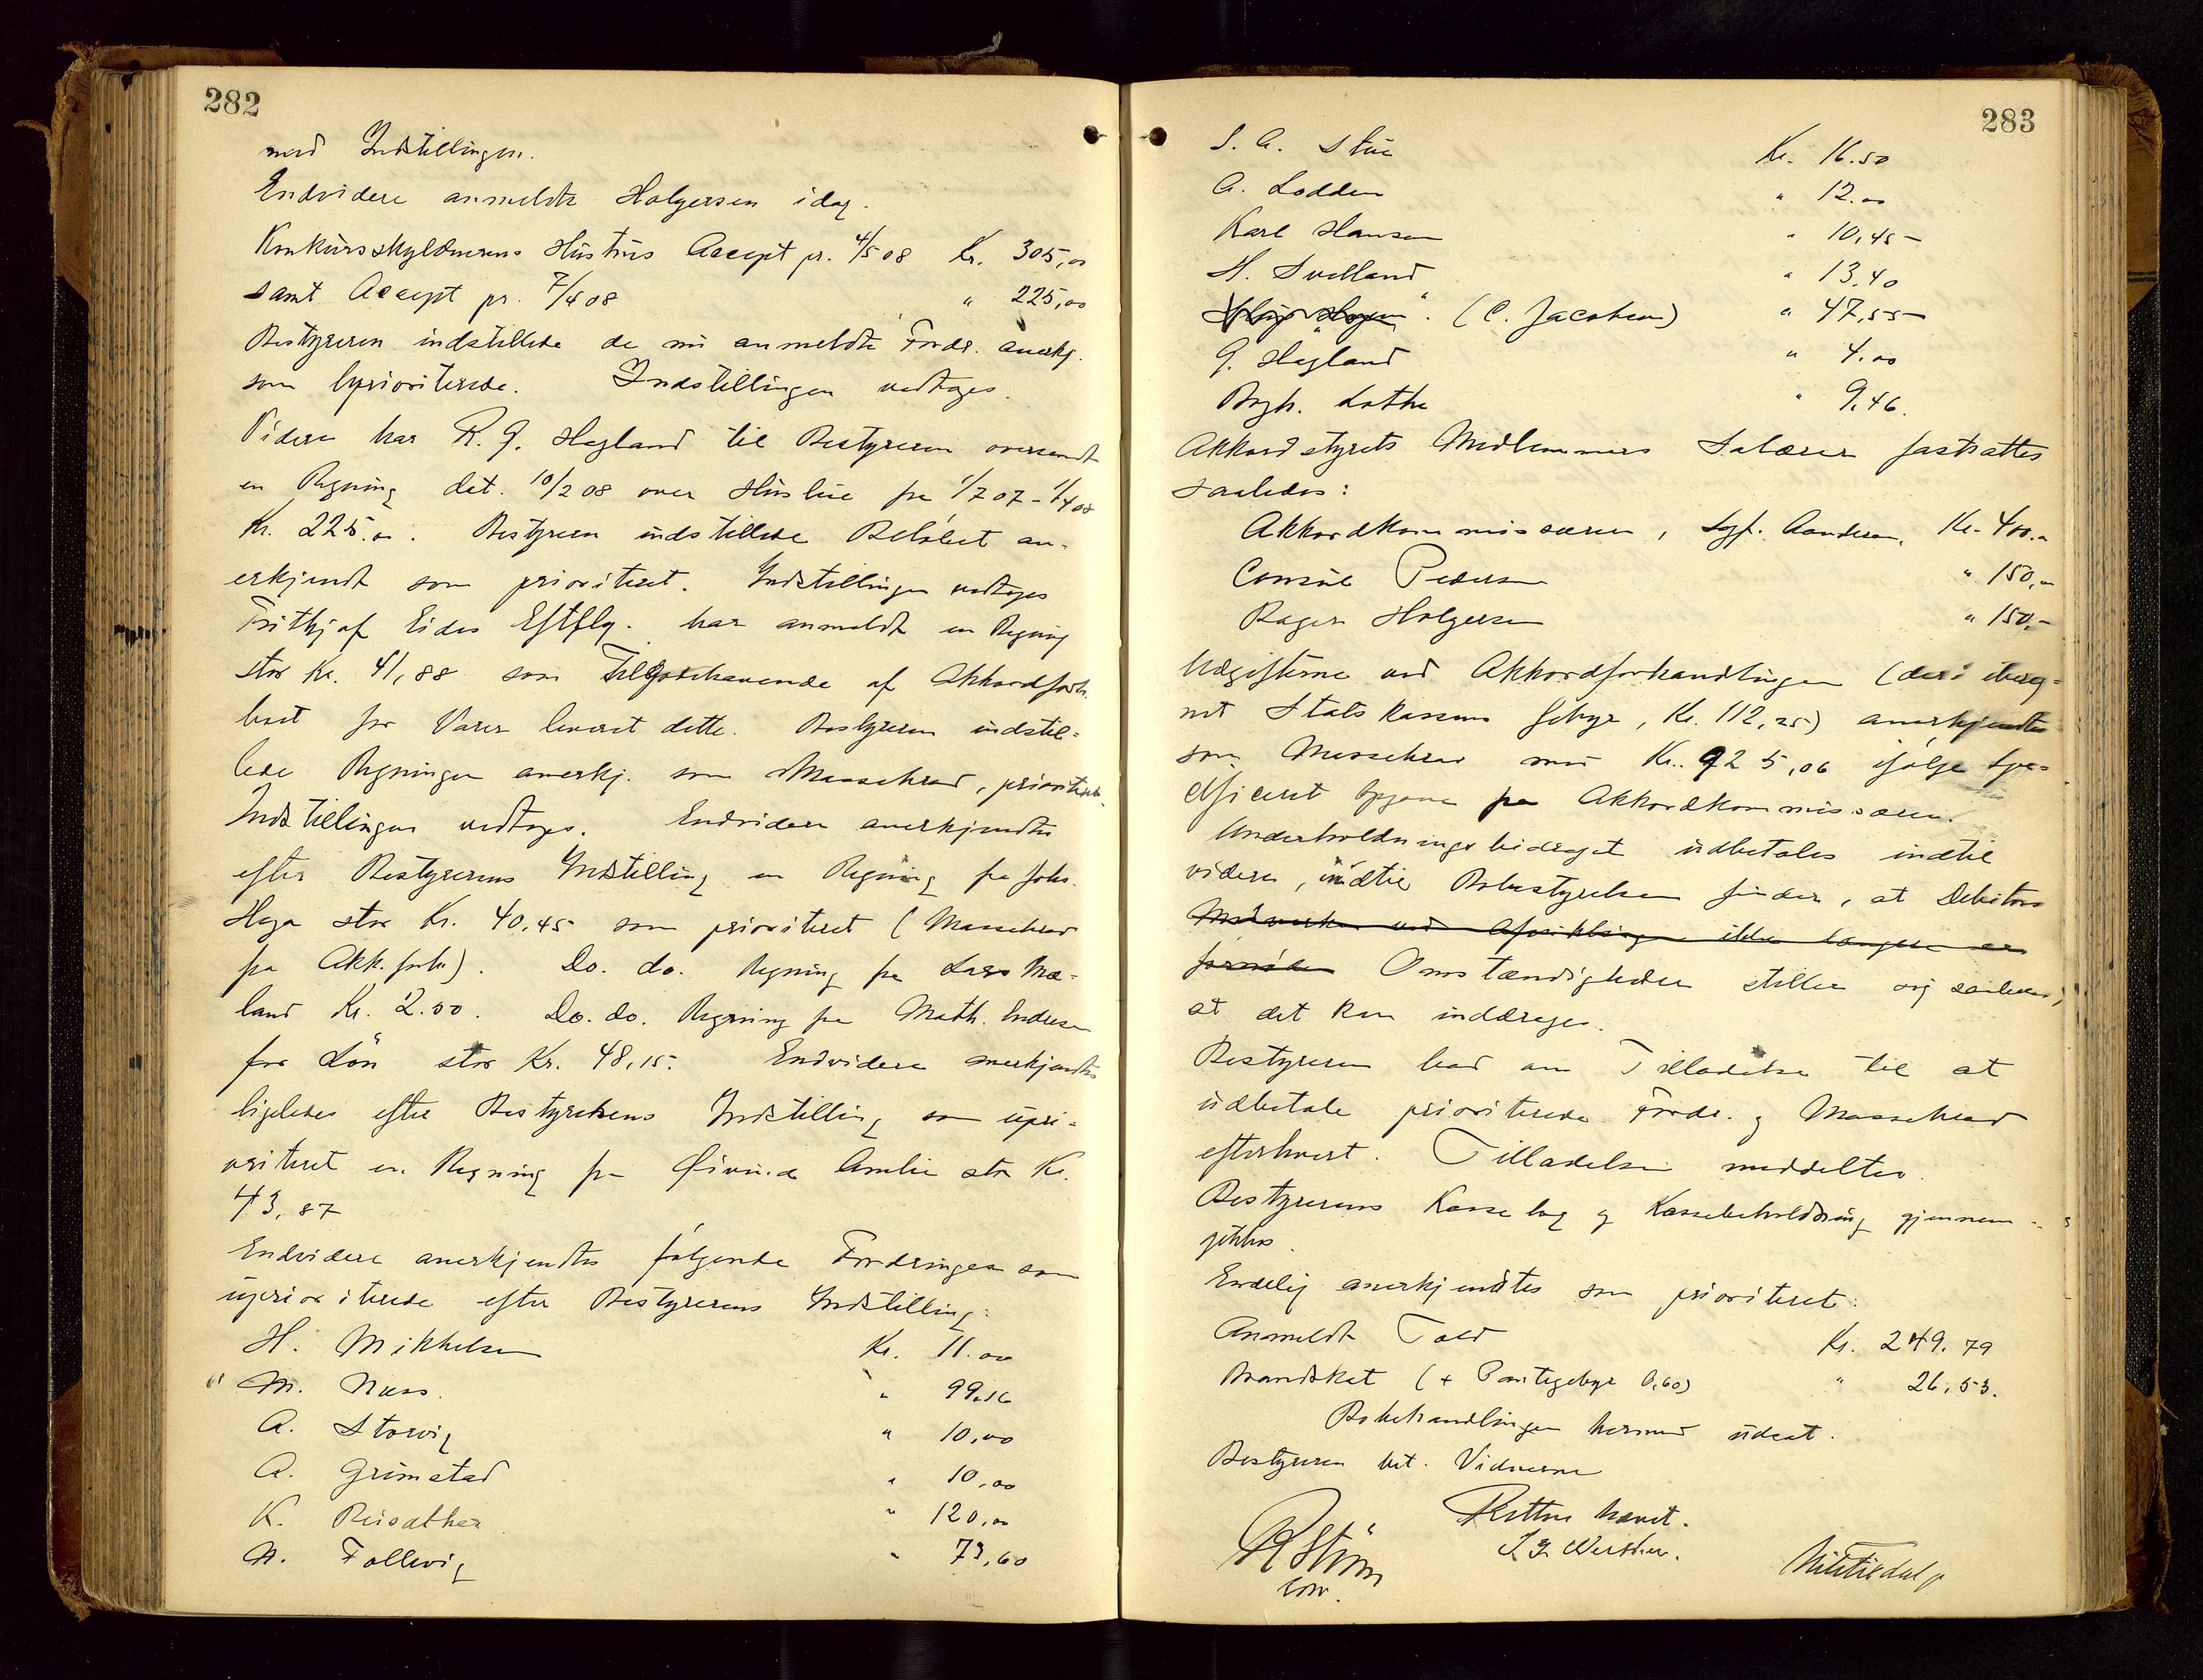 282
med Indstillingen.
Endvidere anmeldte Holgersen idag.
Konkursskyldnerens Hustrus Accept pr. 4/5 08 Kr. 305,00
samt Accept pr. 7/4 08 " 225,00
Bestyreren indstillede de nu anmeldte Fordr. anerkj.
som uprioriterede. Indstillingen vedtoges.
Videre har R. G. Hagland til Bestyreren oversendt
en Regning dat. 10/2 08 over Husleie fra 1/7 07 - 1/4 08
Kr. 225.00. Bestyreren indstillede Beløbet an-
erkjendt som prioriteret. Indstillingen vedtoges
Frithjof Eides Eftflg. har anmeldt en Regning
stor Kr. 41,88 som Tilgodehavende af Akkordforh.
boet for Varer leveret dette. Bestyreren indstil-
lede Regningen anerkj. som Massekrav, prioriteret.
Indstillingen vedtoges. Endvidere anerkjendtes
efter Bestyrerens Indstilling en Regning fra Johs.
Haga stor Kr. 40,45 som prioriteret (Massekrav
fra Akk.forh). Do. do. Regning fra Lars Mæ-
land Kr. 2.00. Do. do. Regning fra Math. Endresen
for Løn stor Kr. 48,15. Endvidere anerkjendtes
ligeledes efter Bestyrerens Indstilling som upri-
oriteret en Regning fra Amlie stor Kr.
43,87
Endvidere anerkjendtes følgende Fordringer som
uprioriterede efter Bestyrerens Indstilling:
H. Mikkelsen Kr. 11.00
" M. Næss. " 99.16
A. Storvig " 10,00
A. Grimstad " 10,00
K. Reisæther " 120,00
N. Follevig " 73,60
283
S. A. Stue Kr. 16.50
A. Lodden " 12.00
Karl Hansen " 10,45
H. Svelland " 13,40
(C. Jacobsen) " 47,55
G. Hagland " 4.00
Bogh. Lothe " 9,46.
Akkordstyrets Medlemmers Salærer fastsattes
saaledes:
Akkordkommissæren, Sgf. Aandersen, Kr. 400.00
Consul Pedersen " 150,00
Bager Holgersen " 150,-
Udgifterne ved Akkordforhandlingen (deri ibereg-
net Statskassens Gebyr, Kr. 112,25) anerkjendtes
som Massekrav med Kr. 925,06 ifølge spe-
cificeret Opgave fra Akkordkommissæren.
Underholdningsbidraget udbetales indtil
videre, indtil Bobestyrelsen finder, at Debitors
Medvirken ved Afviklingen ikke længere er
fornøden Omstændigheder stiller sig saaledes,
at det kan inddrages.
Bestyreren bad om Tilladelse til at
udbetale prioriterede Fordr. og Massekrav
efterhvert. Tilladelsen meddeltes.
Bestyrerens Kassebog og Kassebeholdning gjennem-
gikkes.
Endelig anerkjendtes som prioriteret:
Anmeldt Told Kr. 249.79
Brandskat (+ Pantegebyr 0,60) " 26,53.
Bobehandlingen hermed udsat.
Bestyreren bet. Vidnerne
Retten hævet.